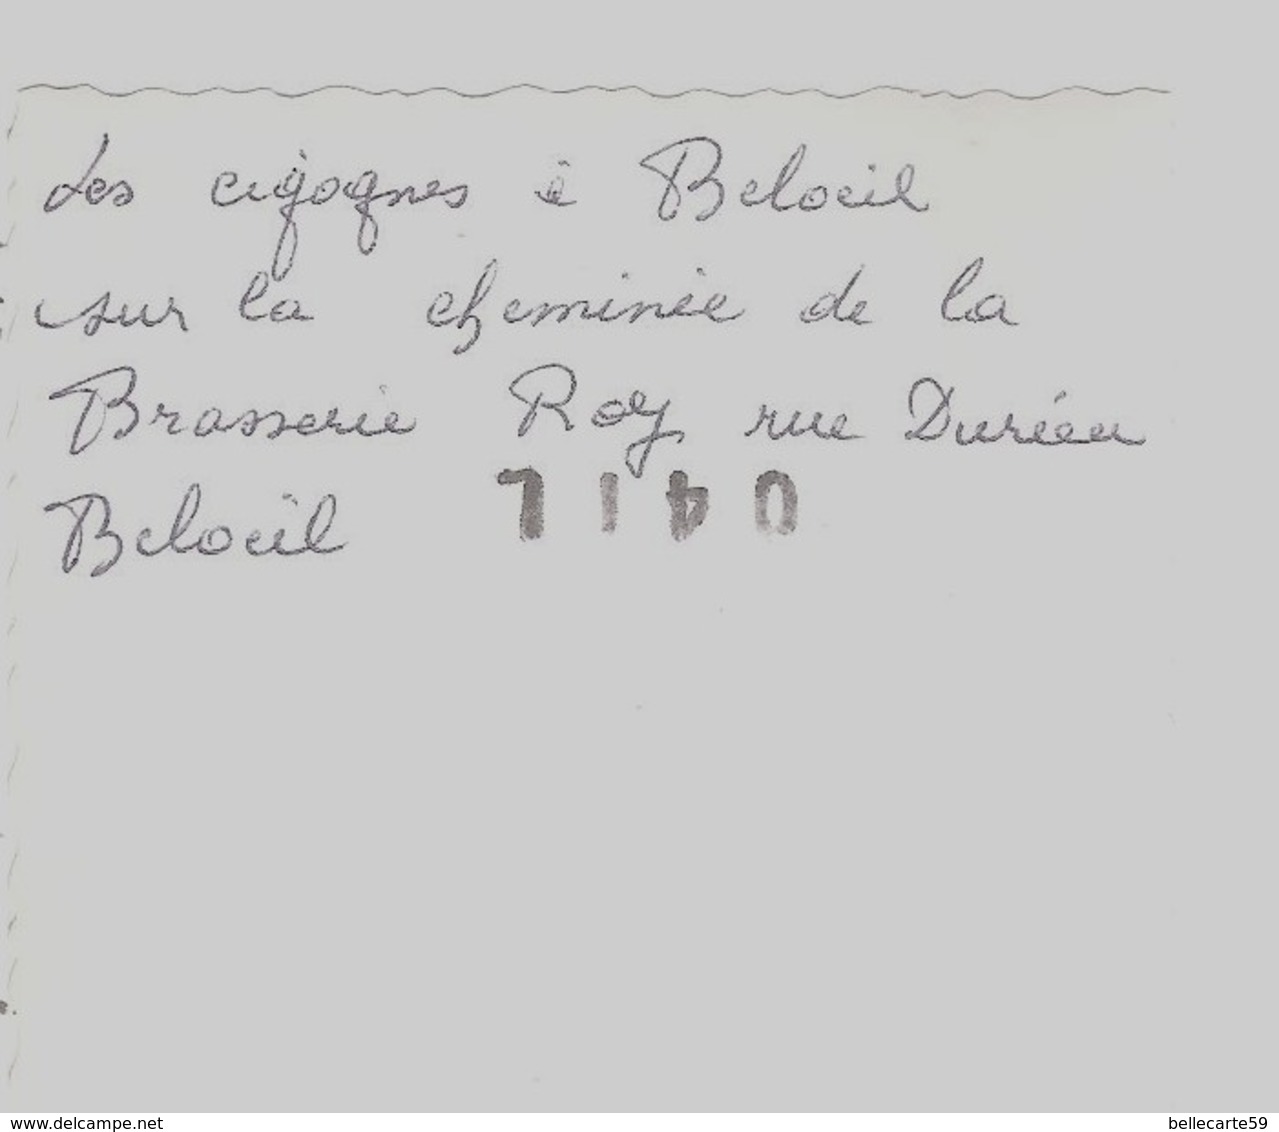 Les cigognes à Beloeil
sur la cheminée de la
Brasserie Roy rue Duriéu
Beloeil
0417
www.delcampe.net
bellecarte59